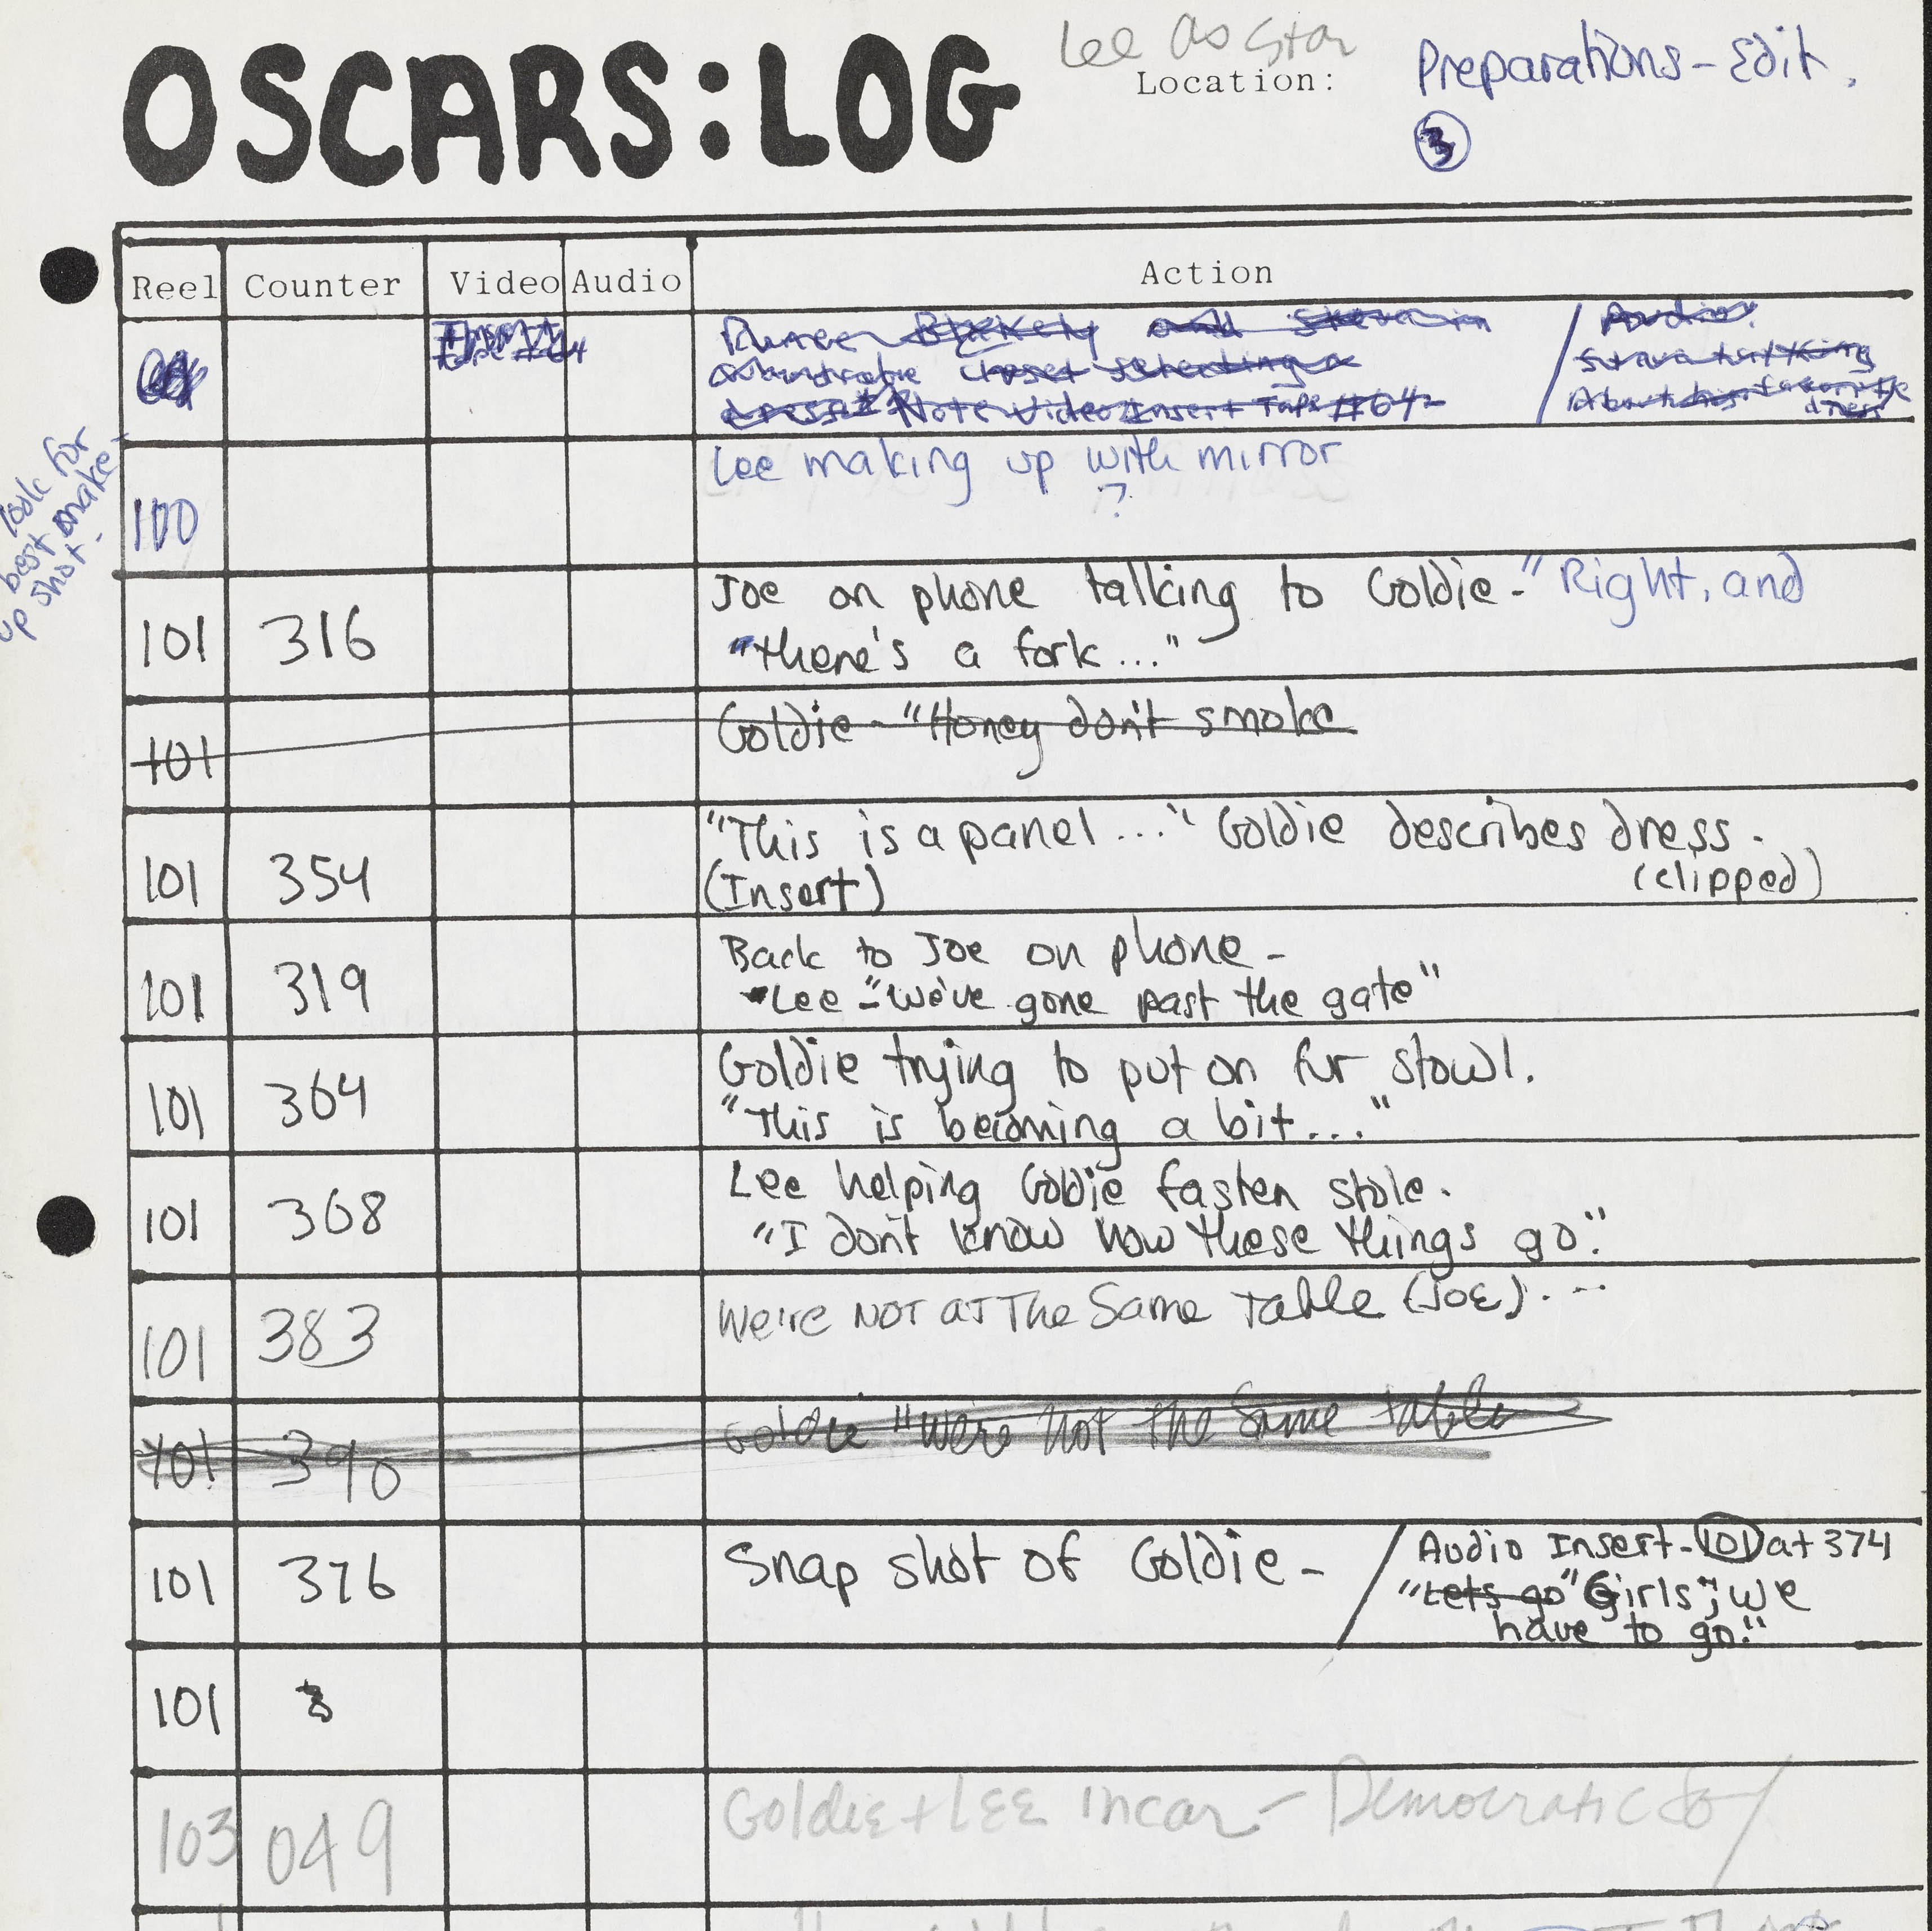 Lee as Star
OSCARS:LOG
Location:
Preparations - Edit.
3
Reel Counter Video Audio Action
Insert
tape #64
closet selecting a
dress * Note Video Insert Tape #64
Audio:
talking
About his favorite
dress
look for
best make-
up shot-
100 Lee making up with mirror
?
101 316 Joe on phone talking to Goldie - "Right, and
"there's a fork..."
101 Goldie - "Honey don't smoke
101 354 "This is a panel ..." Goldie describes dress.
(Insert) (clipped)
101 319 Back to Joe on phone -
Lee - "We've gone past the gate"
101 364 Goldie trying to put on fur stowl.
"This is becoming a bit..."
101 368 Lee helping Goldie fasten stole.
"I don't know how these things go."
101 383 We're NOT AT The Same Table (JOE)...
101 390 Goldie "We're not the Same table
101 376 Snap shot of Goldie - / Audio Insert - 101 at 374
"Lets go" Girls, we
have to go."
101 3
103 049 Goldie + LEE in car - Democratic